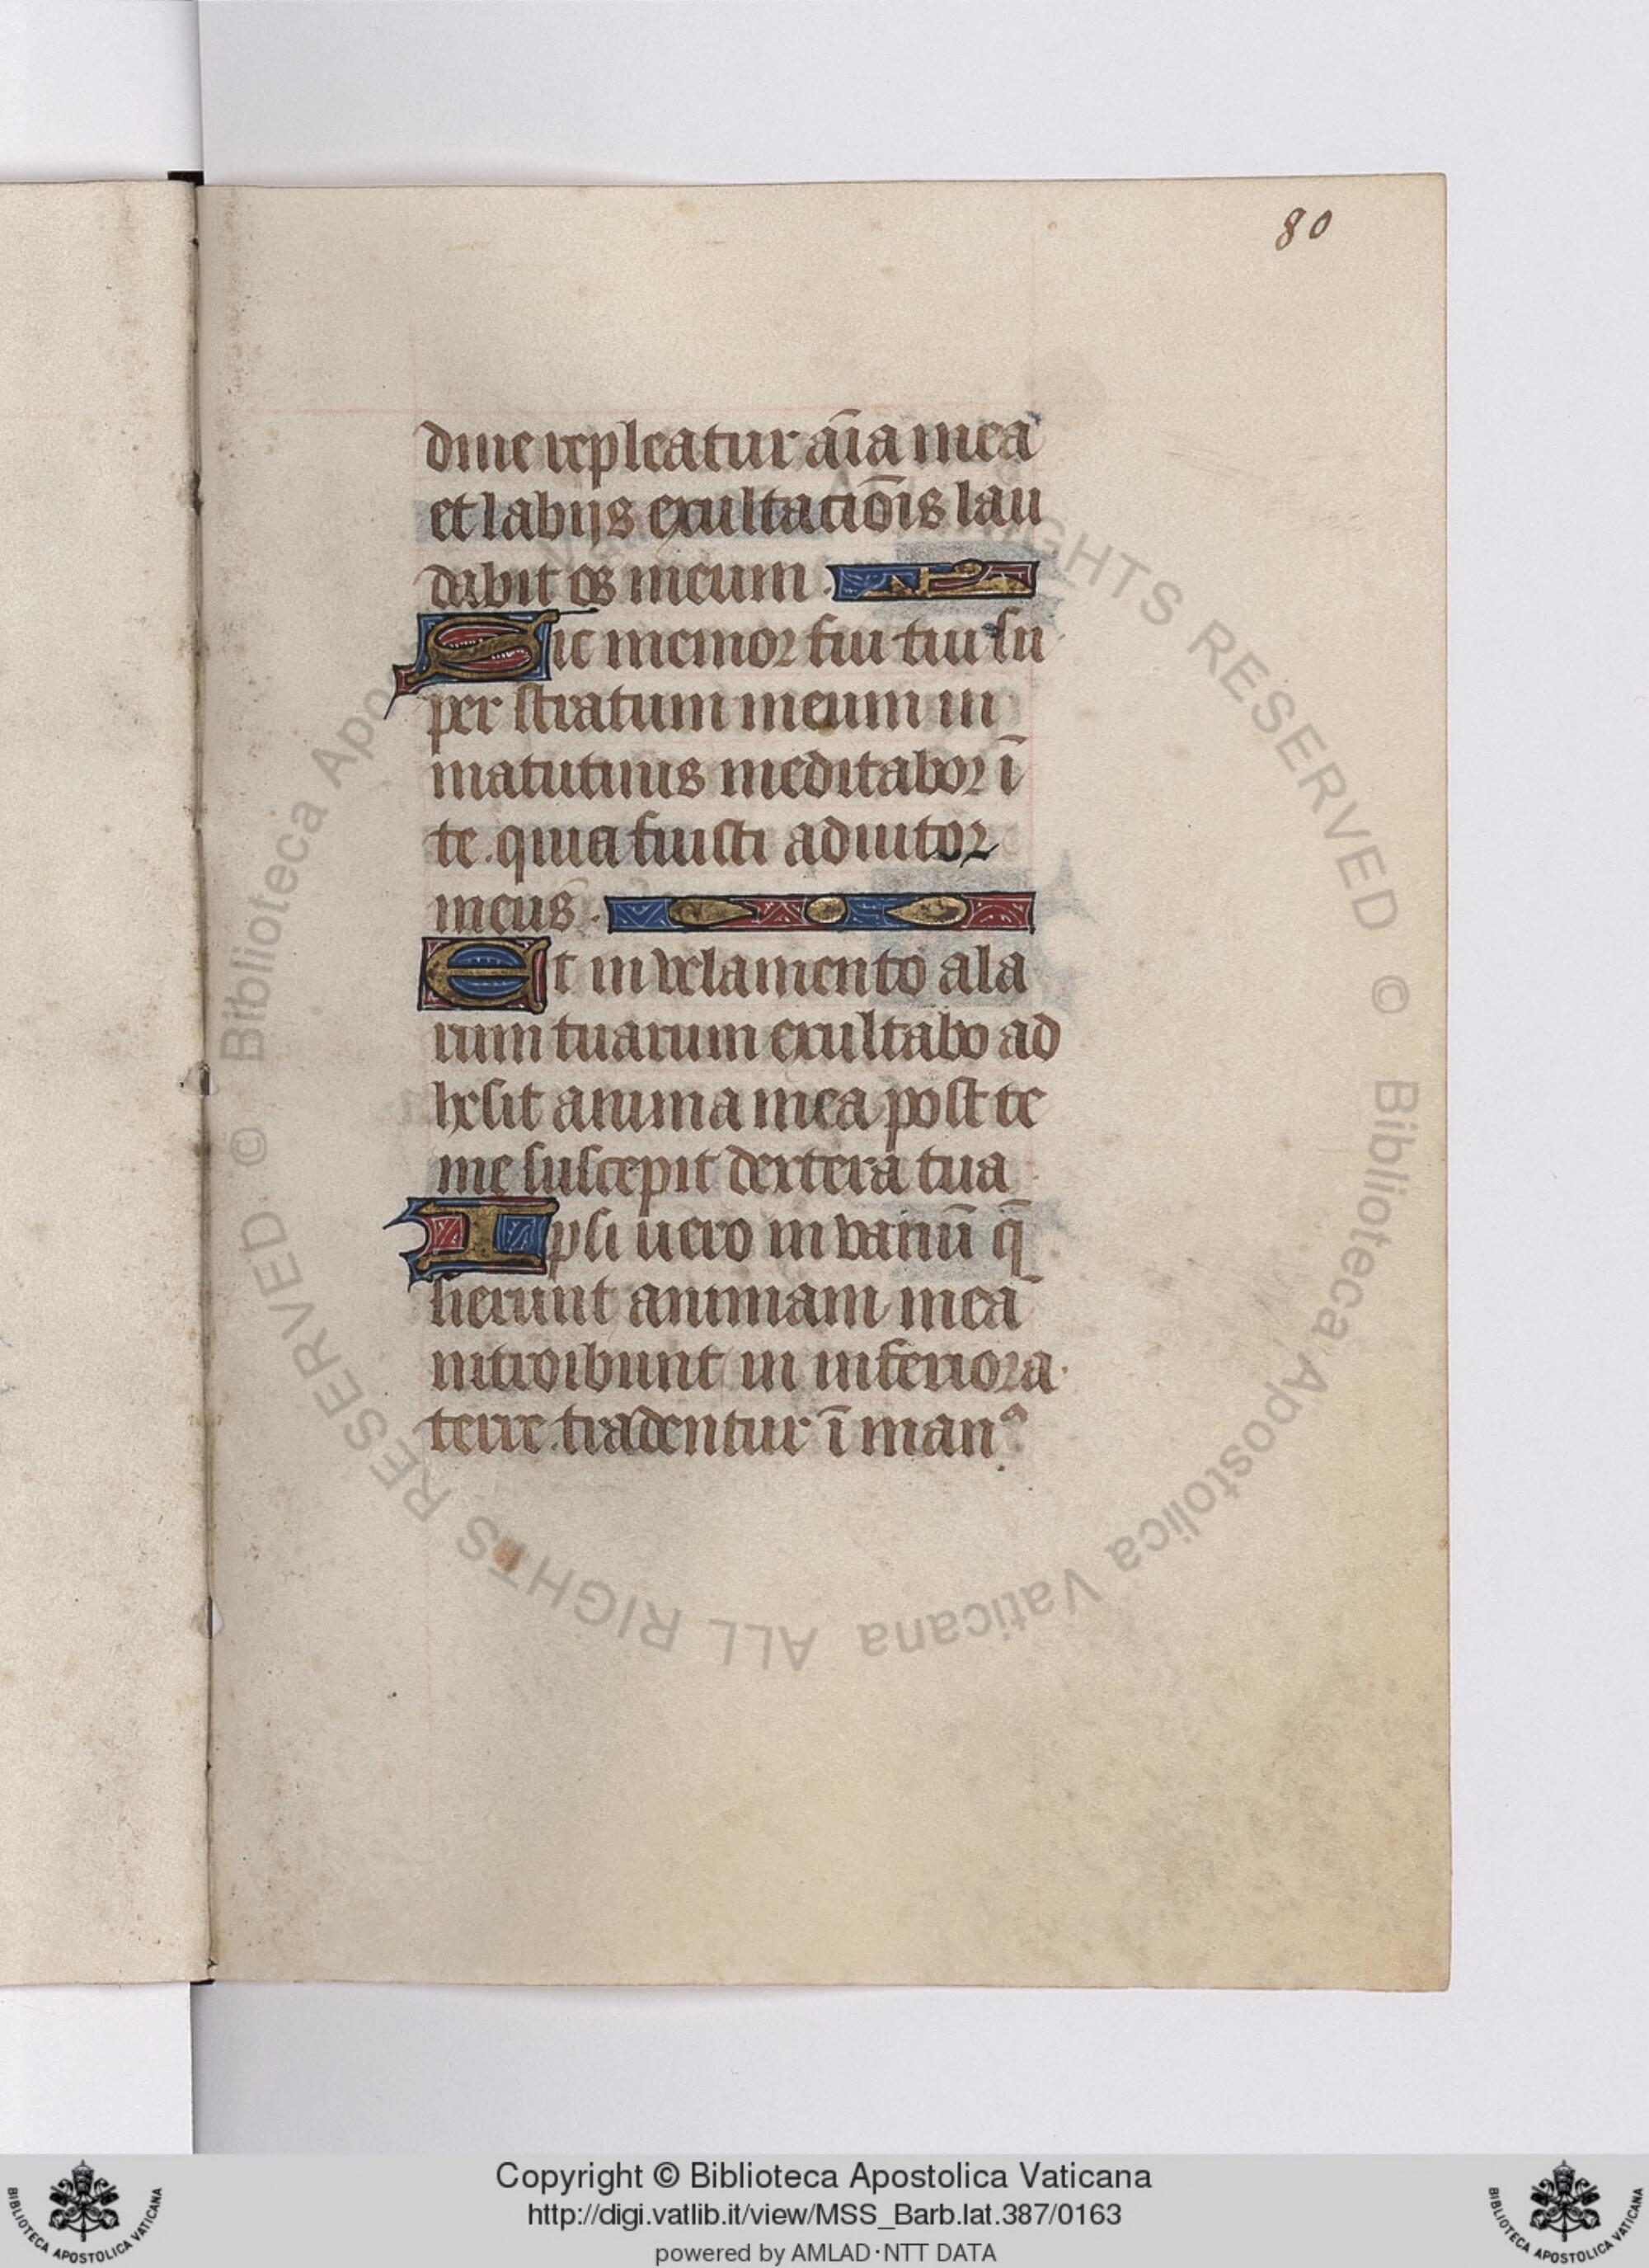 80
dine repleatur aīa mea
et labijs exultaciōis lau
dabit os meum .
Sic memor fui tui su
per stratum meum in
matutinis meditabor ī
te . quia fuisti adiutor
meus .
Et in velamento ala
rum tuarum exultabo ad
hesit anima mea post te
me suscepit dextera tua
Ipsi uero in vanū q̄
sierunt animam meā
introibunt in inferiora
terre . tradentur ī manꝰ
Copyright © Biblioteca Apostolica Vaticana
http://digi.vatlib.it/view/MSS_Barb.lat.387/0163
powered by AMLAD·NTT DATA
BIBLIOTECA APOSTOLICA VATICANA
BIBLIOTECA APOSTOLICA VATICANA
© Biblioteca Apostolica Vaticana ALL RIGHTS RESERVED © Biblioteca Apostolica Vaticana ALL RIGHTS RESERVED